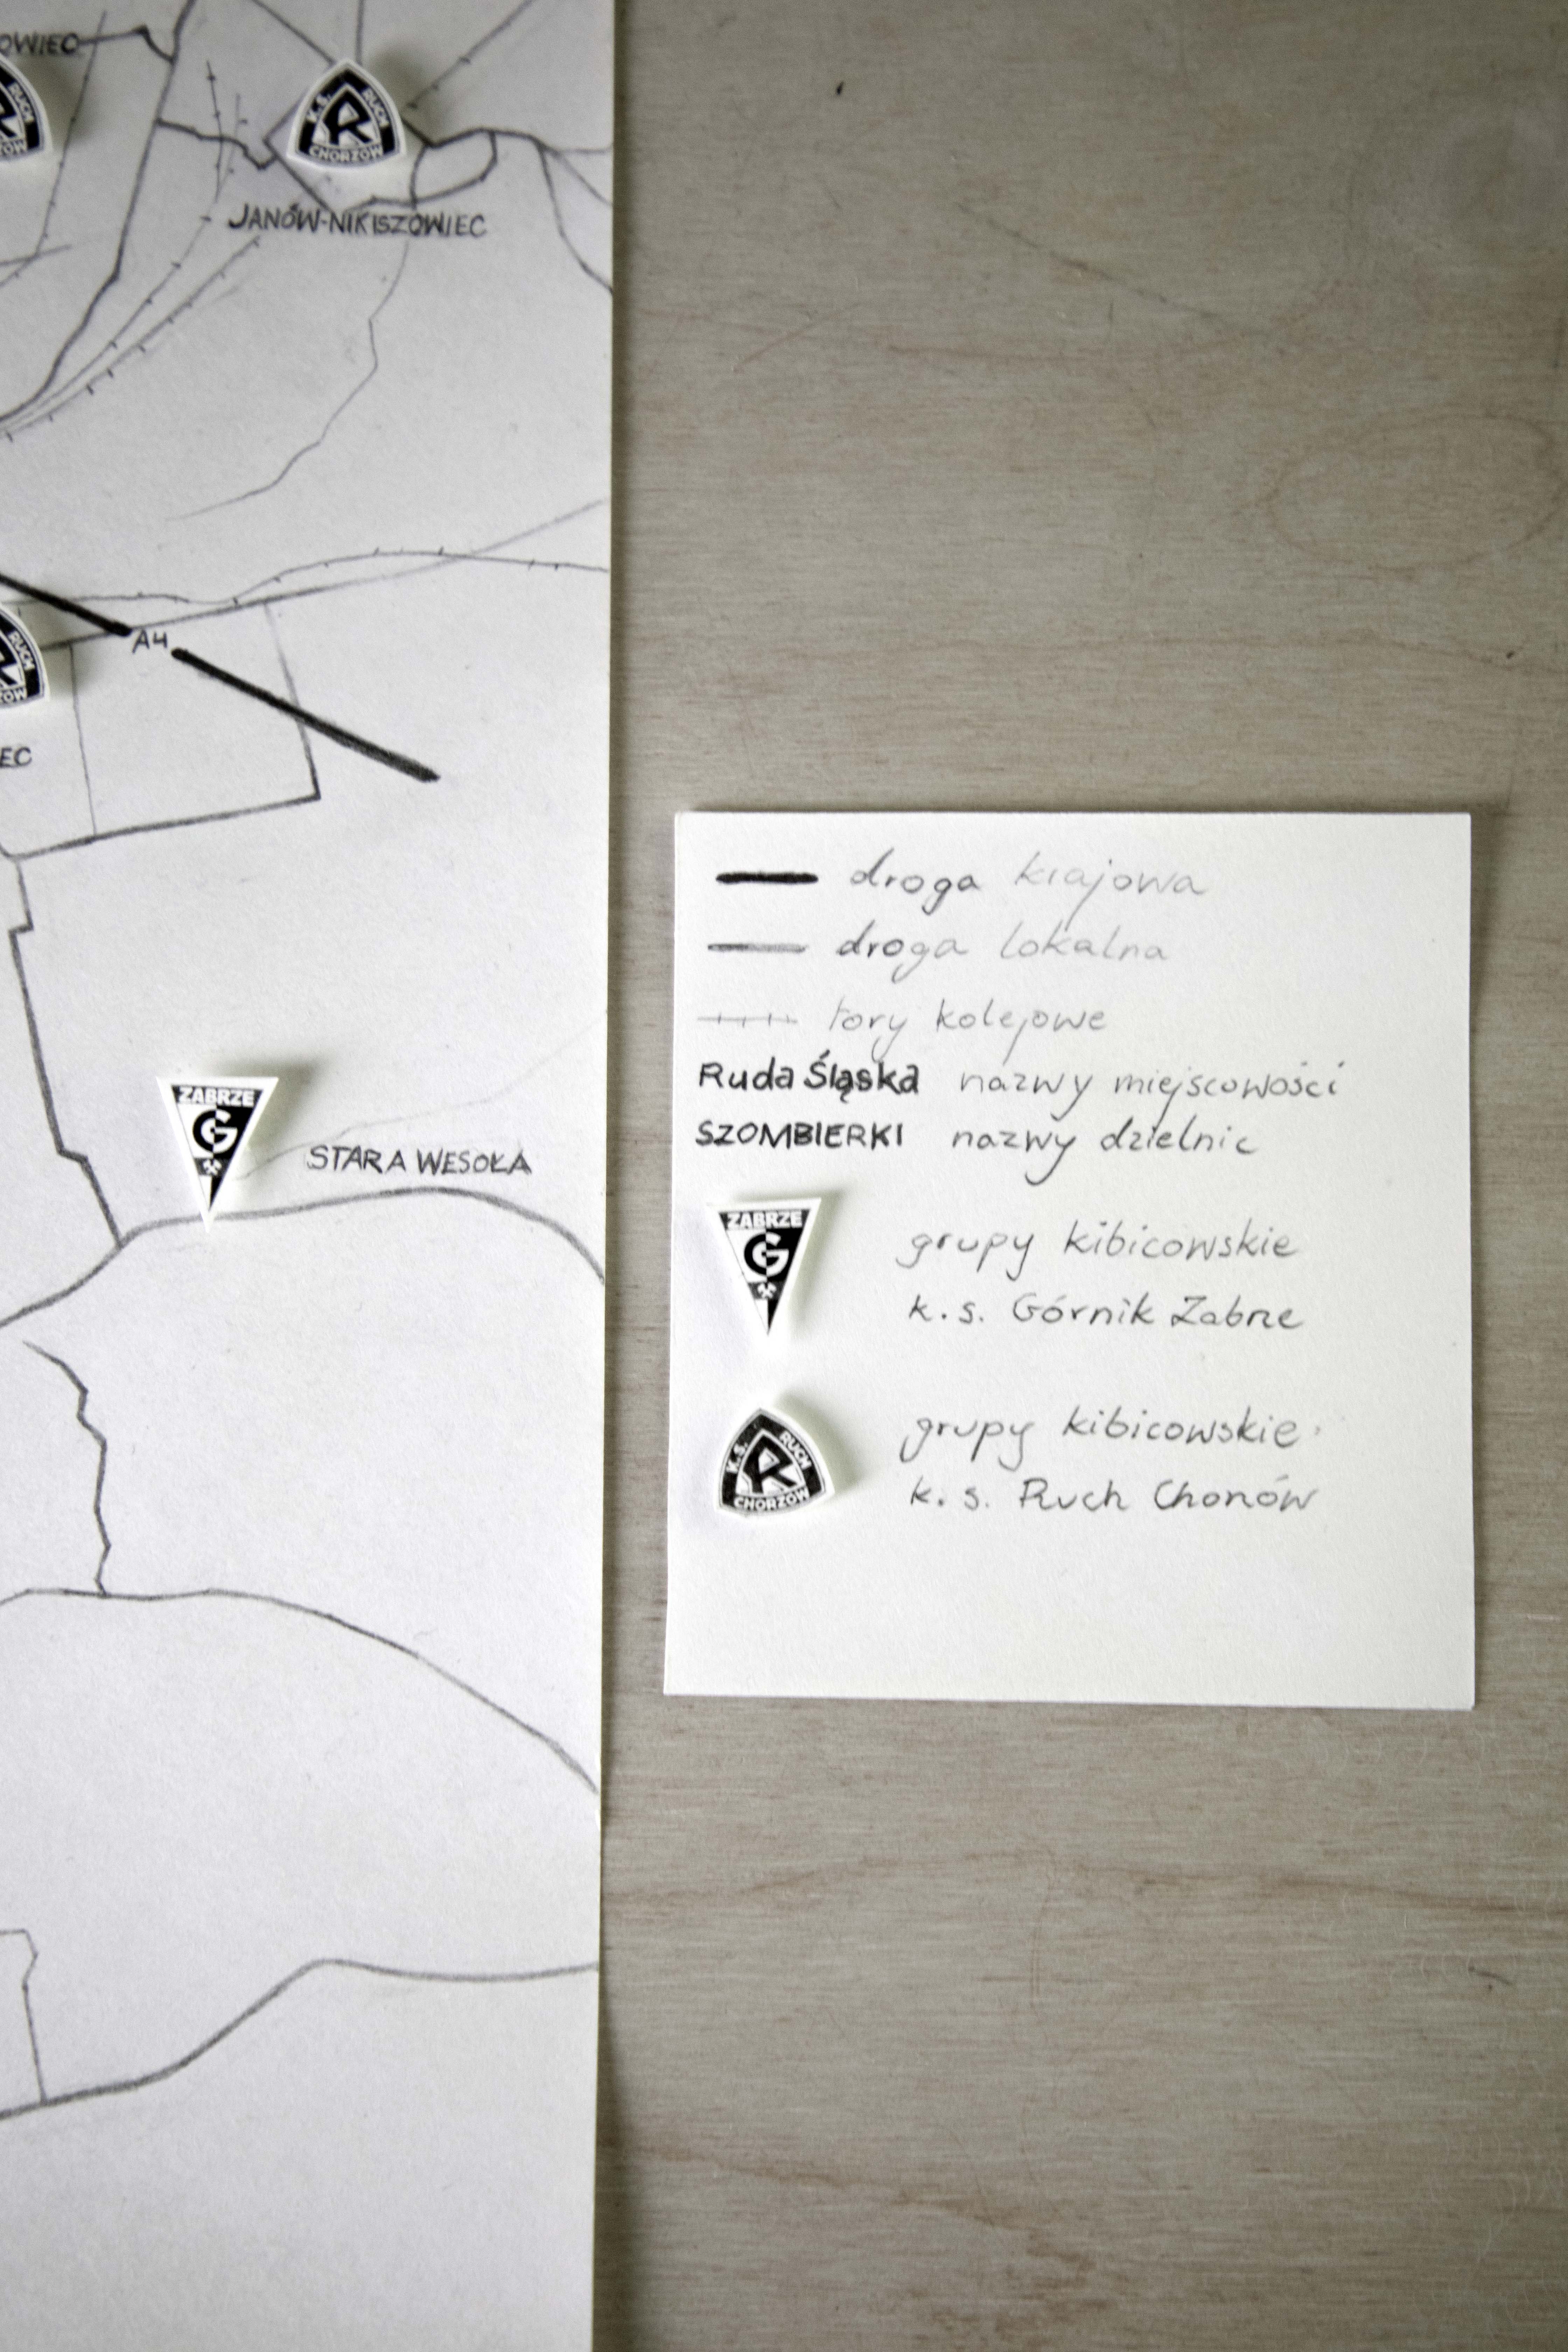 OWIEC
K.S. RUCH
R
CHORZÓW
RUCH
ZÓW
JANÓW-NIKISZOWIEC
A4
RUCH
ZÓW
EC
ZABRZE
G
STARA WESOŁA
droga krajowa
droga lokalna
tory kolejowe
Ruda Śląska nazwy miejscowości
SZOMBIERKI nazwy dzielnic
ZABRZE
G
grupy kibicowskie
k.s. Górnik Zabrze
K.S. RUCH
R
CHORZÓW
grupy kibicowskie
k.s. Ruch Chorzów